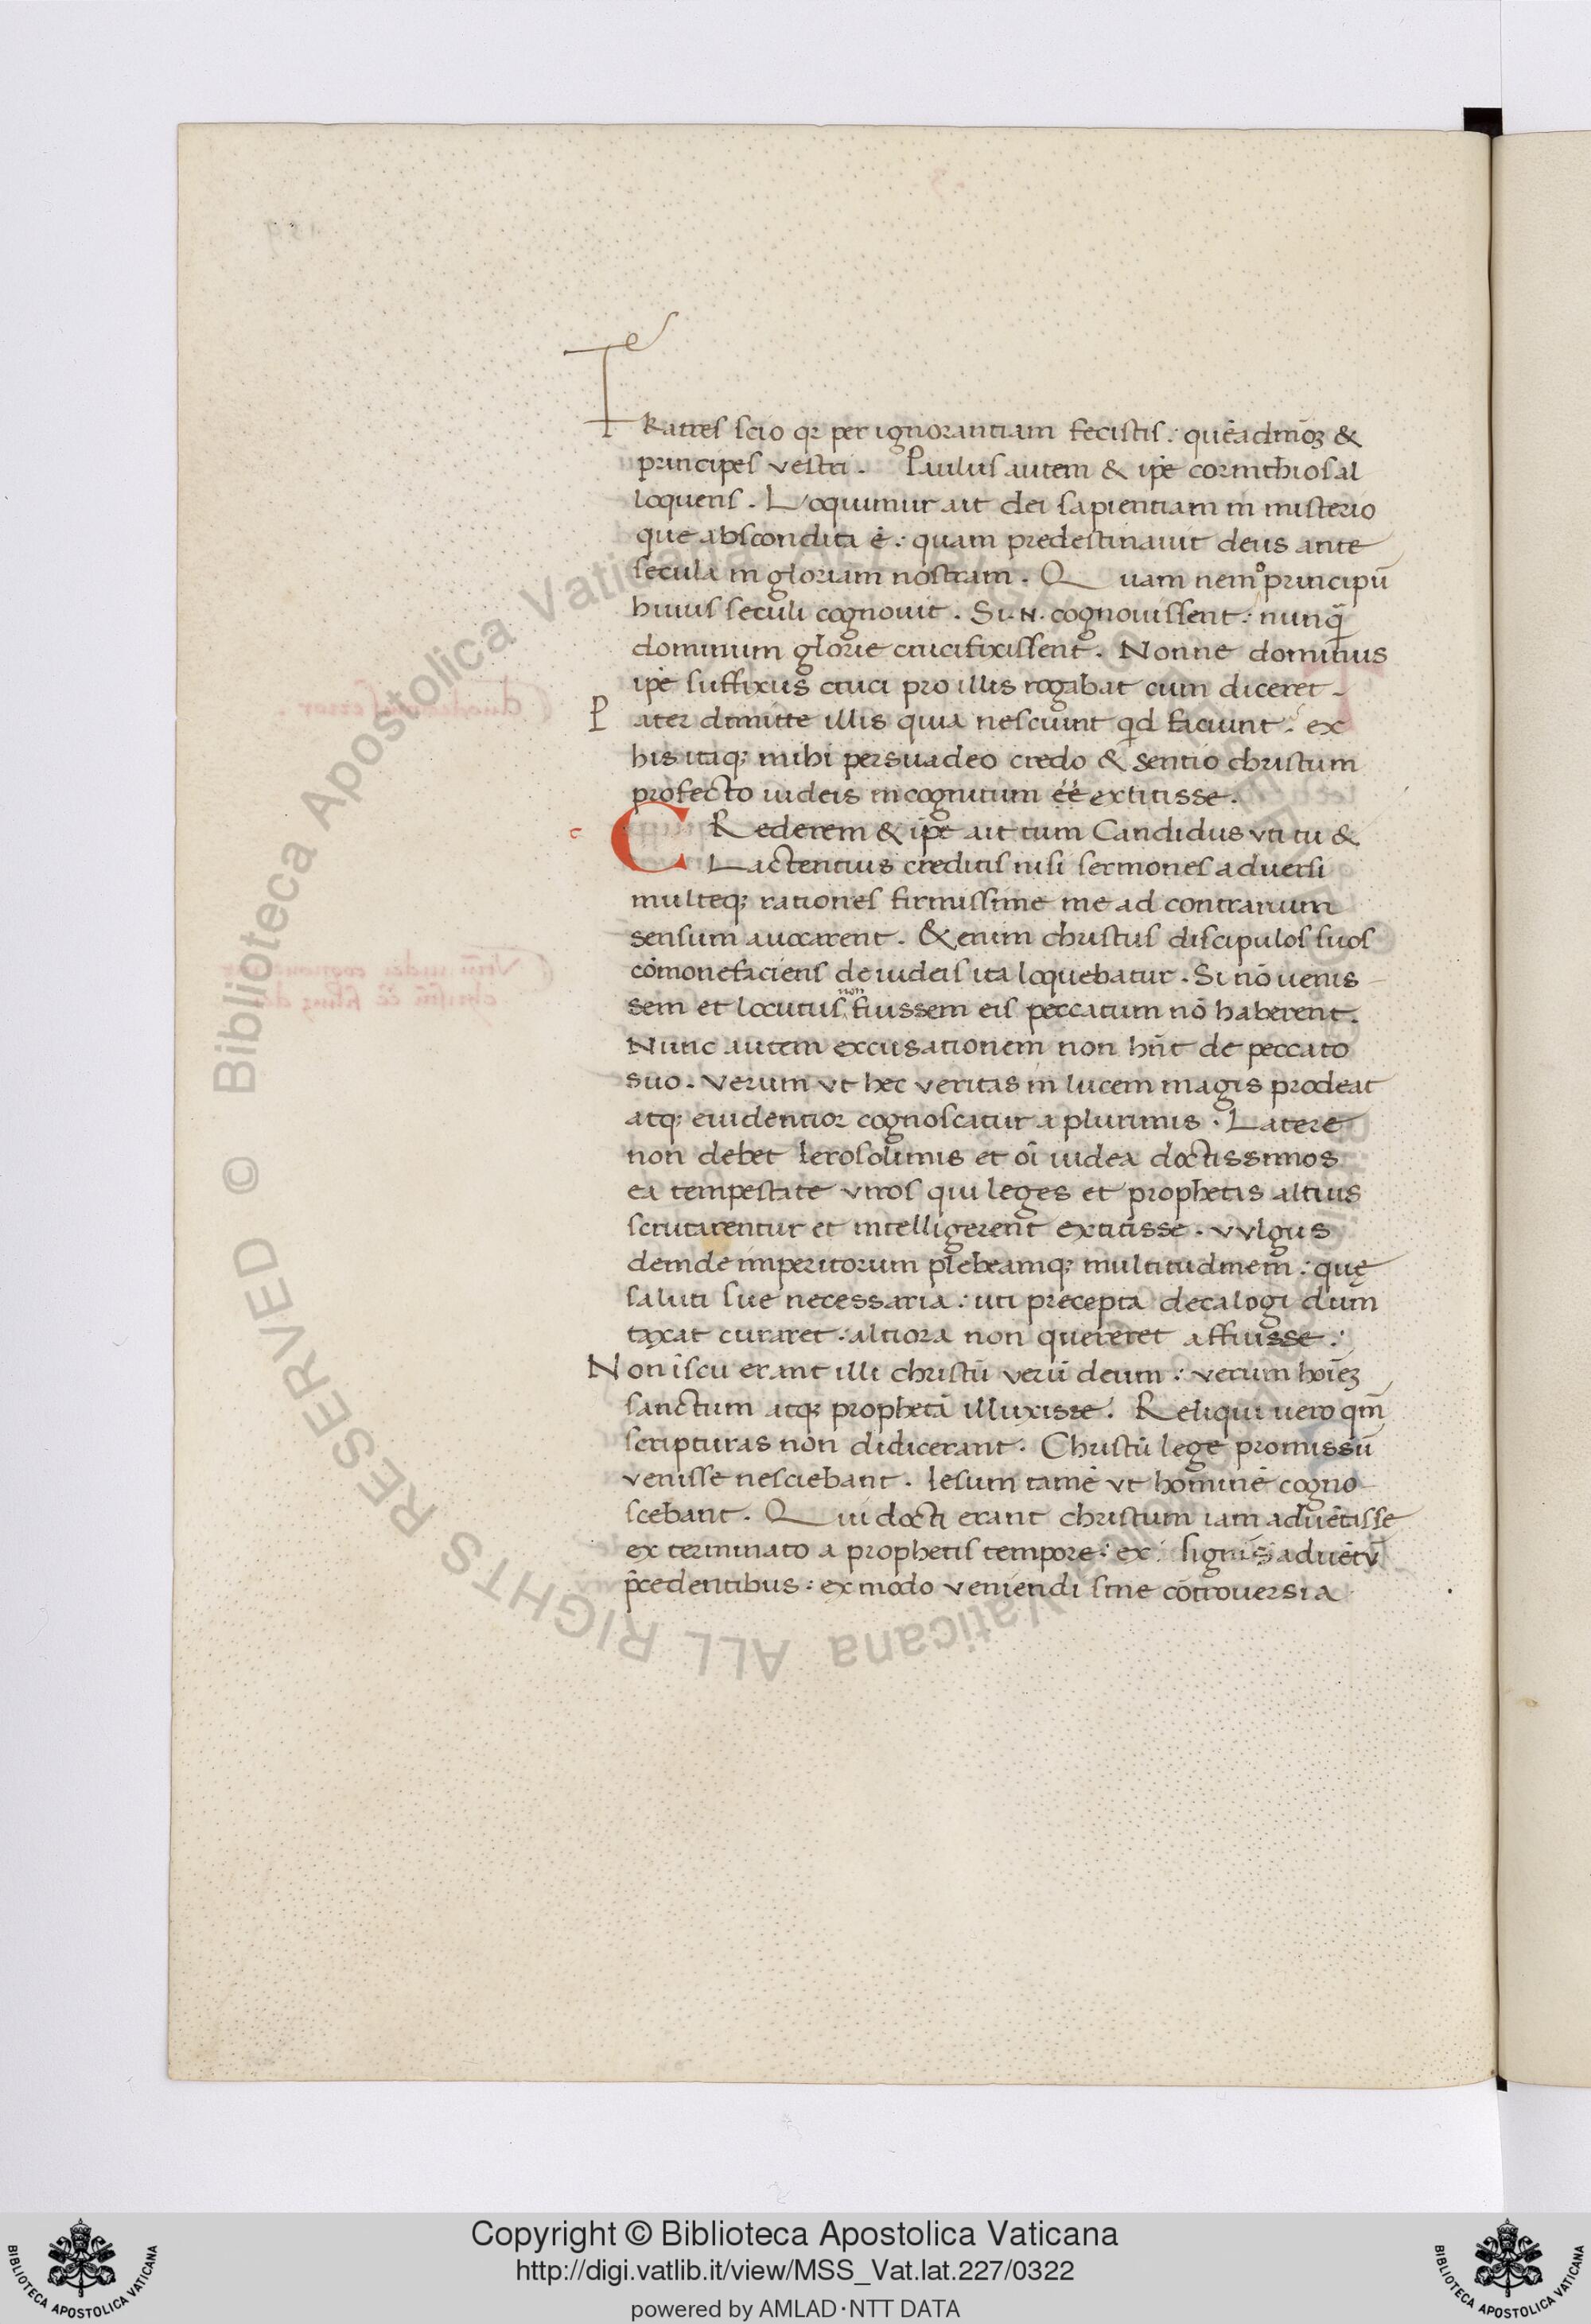 FRatres scio qr per ignorantiam fecistis: quēadmoꝫ &
principes vestri. Paulus autem & ipē corinthios al
loquens. Loquimur ait dei sapientiam in misterio
que abscondita ē: quam predestinauit deus ante
secula in gloriam nostram. Quam nemo principū
huius seculi cognouit. Si .N. cognouissent: nunq̄
dominum glorie crucifixissent. Nonne dominus
ipē suffixus cruci pro illis rogabat cum diceret.
Pater dimitte illis quia nesciunt qd faciunt. ex
his itaqꝫ mihi persuadeo credo & sentio christum
profecto iudeis incognitum éé extitisse.
c CRederem & ipē ait tum Candidus vti tu &
Lactentius creditis nisi sermones aduersi
multeqꝫ rationes firmissime me ad contrarium
sensum auocarent. &enim christus discipulos suos
cōmonefaciens de iudeis ita loquebatur. Si nō uenis
sem et locutus non fuissem eis peccatum nō haberent.
Nunc autem excusationem non hn̄t de peccato
suo. verum vt hec veritas in lucem magis prodeat
atqꝫ euidentior cognoscatur a plurimis. Latere
non debet Ierosolimis et oī iudea doctissimos
ea tempestate viros qui leges et prophetas altius
scrutarentur et intelligerent extitisse. vvlgus
deinde imperitorum plebeamqꝫ multitudinem: quę
saluti sue necessaria: uti precepta decalogi dum
taxat curaret: altiora non quereret affuisse:
Non īscii erant illi christū verū deum: verum hoīeꝫ
sanctum atqꝫ prophetā illuxisse. Reliqui uero qm̄
scripturas non didicerant. Christū lege promissū
venisse nesciebant. Iesum tamē vt hominē cogno
scebant. Qui docti erant christum iam aduētasse
ex terminato a prophetis tempore: ex signis aduētū
p̄cedentibus: ex modo veniendi sine cōtrouersia
© Biblioteca Apostolica Vaticana ALL RIGHTS RESERVED
Copyright © Biblioteca Apostolica Vaticana
http://digi.vatlib.it/view/MSS_Vat.lat.227/0322
powered by AMLAD·NTT DATA
BIBLIOTECA APOSTOLICA VATICANA
BIBLIOTECA APOSTOLICA VATICANA